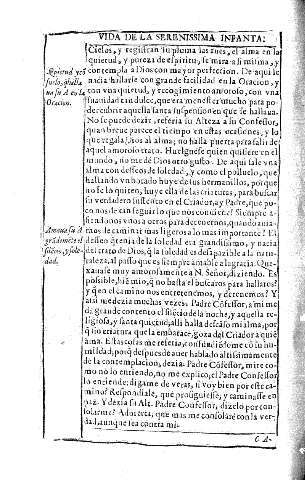 VIDA DE LA SERENISSIMA INFANTA:
Cielos, y registran su pluma las aues, el alma en la
quietud, y pureza de espiritu, se mira a si misma, y
contempla a Dios con mayor perfeccion. De aqui le
nacia hallarse con grande facilidad en la Oracion, y
con vna quietud, y recogimiento amoroso, con vna
suauidad tan dulce, que era menester mucho para po-
der cubrir aquella santa suspension en que se hallaua.
No se puede dezir, referia su Alteza a su Confessor,
quan breue parece el tiempo en estas ocasiones, y lo
que regala Dios al alma, no halla puerta para salir de
aquel amoroso trato. Huelguense quien quisiere en el
mundo, no me dè Dios otro gusto. De aqui sale vna
alma con desseos de soledad, y como el polluelo, que
hallando vn bocado huye de sus hermanillos, porque
no se lo quiten, huye ella de las criaturas, para buscar
su verdadero sustento en el Criador, a y Padre, que po-
cos no les can seguir lo que nos conuiene! Siempre a-
sidonos vnos a otros para detenernos, quando auia-
mos de caminar mas ligeros a lo mas importante! El
desseo q̃ tenia de la soledad era grandissimo, y nacia
del trato de Dios, q̃ la soledad es desapacible a la natu-
raleza, al passo que es siempre amable a la gracia. Que-
xauase muy amorosamente a N. Señor, diziendo. Es
possible, biẽ mio, q̃ no ha de auer
y q̃ en el camino nos entretenemos, y detenemos? Y
assi me dezia muchas vezes. Padre Cõfessor, a mi me da
grande contento el silẽcio de la noche, y aquella re-
ligiosa, y santa quietud, alli halla descãso mi alma, por
q̃ no ay criatura que la embarace, goza del Criador a quiẽ
ama. Estas cosas me referia, y confundiõme cõ su hu-
mildad, porq̃ despues de auer hablado altissimamente
de la contemplacion, dezia. Padre Cõfessor, mire co-
mo no lo entiendo, no me explico, el Padre Confessor
lo entiende; digame de veras, si voy bien por este ca-
mino? Respondiale, que prosiguiesse, y caminasse en
paz. Y dezia su Alt. Padre Confessor, dizelo por con-
solarme? Adonde, que mas me consolarè con la ver-
dad, aunque sea contra mi.
C A-
Quietud, y es
fuerzo, q̃ halla
na su A en la
Oracion.
Amaua su A
grãdemẽte el
silẽcio, y sole-
dad.